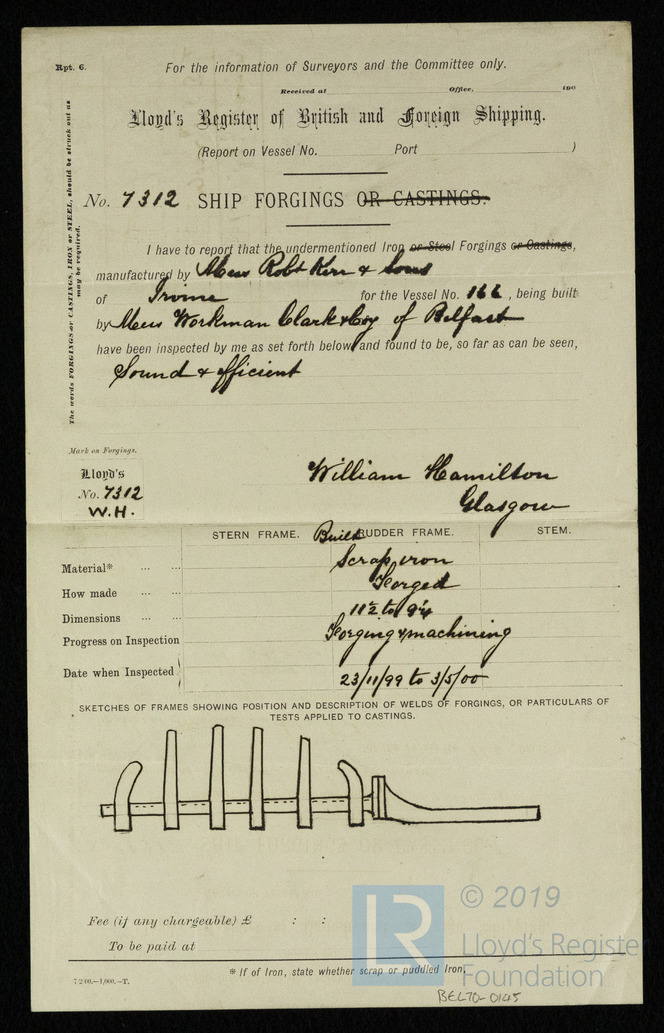 Rpt. 6.
For the information of Surveyors and the Committee only.
Received at Office, 190
Lloyd's Register of British and Foreign Shipping.
(Report on Vessel No. Port )
No. 7312 SHIP FORGINGS OR CASTINGS.
The words FORGINGS or CASTINGS, IRON or STEEL, should be struck out as
may be required.
I have to report that the undermentioned Iron or Steel Forgings or Castings,
manufactured by Mess Robt Kerr & Sons
of Irvine for the Vessel No. 166, being built
by Mess Workman Clark & Coy of Belfast
have been inspected by me as set forth below and found to be, so far as can be seen,
Sound & efficient
Mark on Forgings.
Lloyd's
No. 7312
W.H.
William Hamilton
Glasgow
STERN FRAME. Built RUDDER FRAME. STEM.
Material* ... ... Scrap iron
How made ... ... Forged
Dimensions ... ... 11½ to 9¼
Progress on Inspection Forging & machining
Date when Inspected 23/11/99 to 3/5/00
SKETCHES OF FRAMES SHOWING POSITION AND DESCRIPTION OF WELDS OF FORGINGS, OR PARTICULARS OF
TESTS APPLIED TO CASTINGS.
Fee (if any chargeable) £ : :
To be paid at
* If of Iron, state whether scrap or puddled Iron.
7/2/00.—1,000.—T.
BEL70-0145
LR
© 2019
Lloyd's Register
Foundation